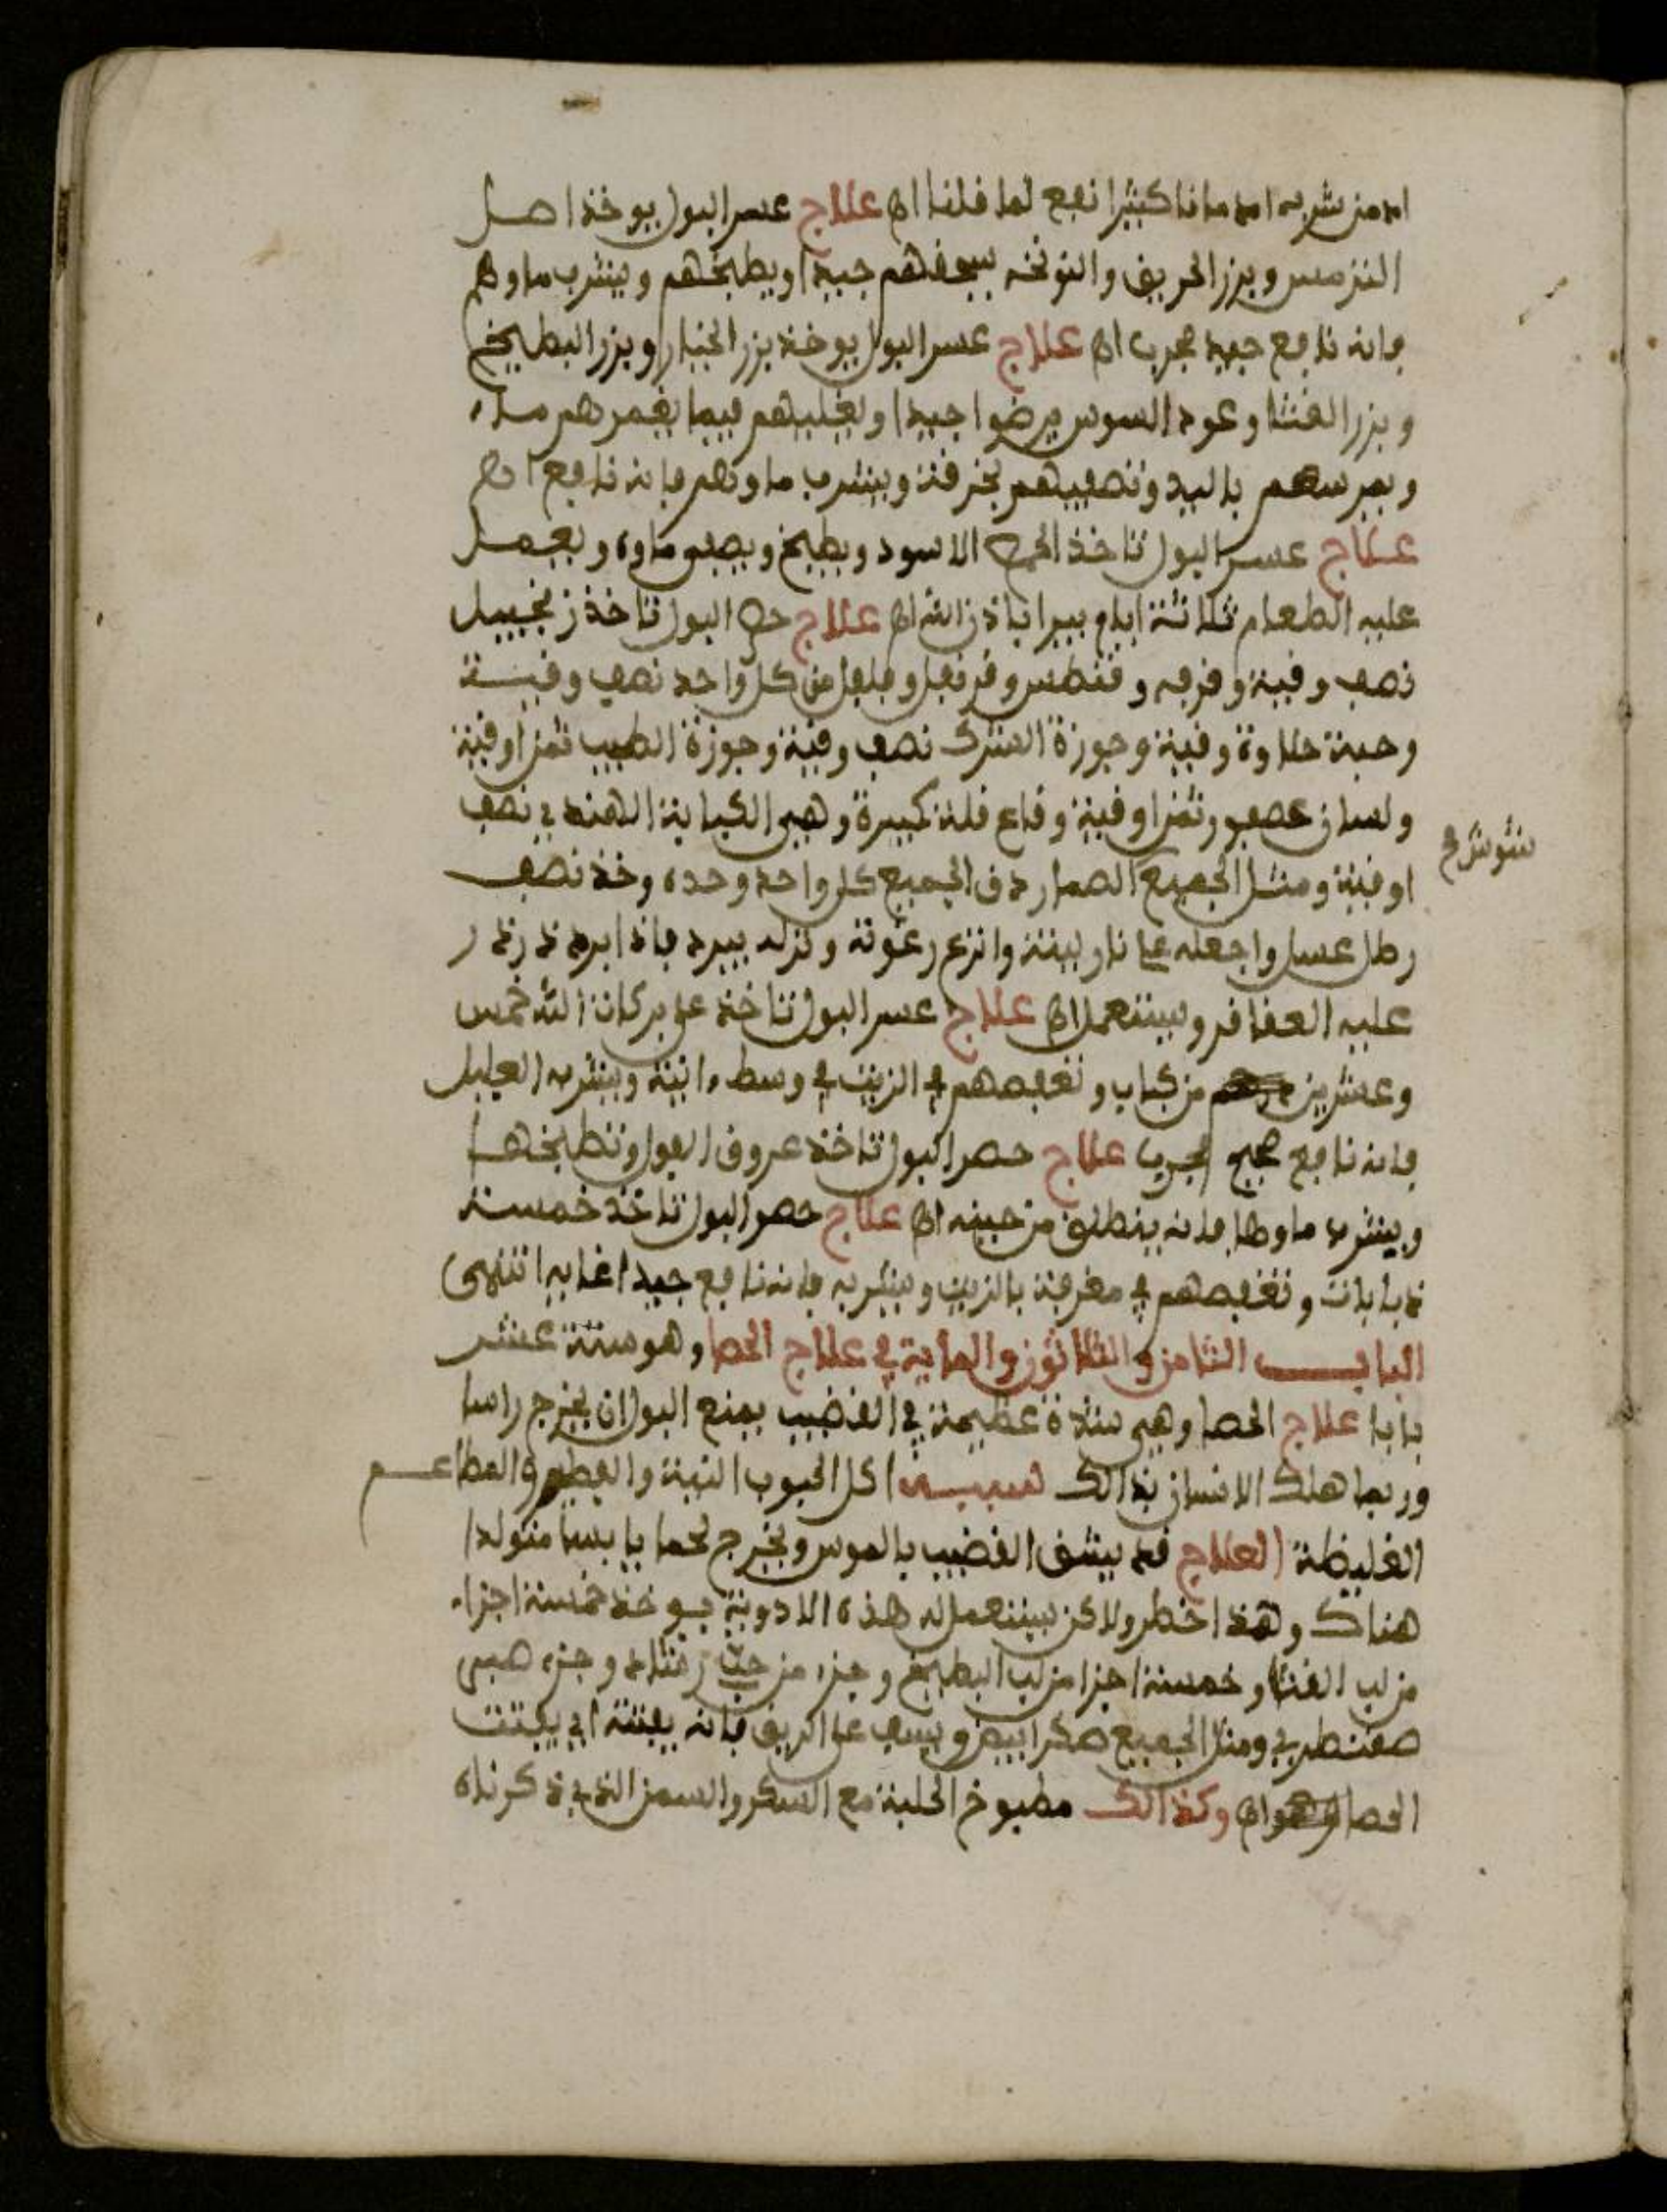 ادمن شربه ادمانا كثيرا نفع لما قلنا اه علاج عسر البول يوخذ اصل
الترمس وبزر الحريق والنونخه يسحقهم جيدا ويطبخهم ويشرب ماوهم
فانه نافع جيد مجرب اه علاج عسر البول يوخذ بزر الخيار وبزر البطيخ
وبزر القثا وعود السوس يرضوا جيدا ويغليهم فيما يغمرهم ماء
ويمرسهم باليد وتصفيهم بخرقة ويشرب ماوهم فانه نافع اه
علاج عسر البول تاخذ الحمص الاسود ويطبخ ويصفى ماوه ويعمل
عليه الطعام ثلاثة ايام يبرا باذن الله اه علاج حصر البول تاخذ زنجبيل
نصف وقية وقرفه وقنطس وقرنفل وفلفل من كل واحد نصف وقية
وحبة حلاوة وقية وجوزة الشرك نصف وقية وجوزة الطيب ثمن اوقية
ولسان عصفور ثمن اوقية وقاع قلة كبيرة وهي الكبابة الهندي نصف
اوقية ومثل الجميع الصمار دق الجميع كل واحد وحده وخذ نصف
رطل عسل واجعله على نار لينة وانزع رغوته ونزله يبرد فاذا برد ذرذر
عليه العقاقر ويستعمل اه علاج عسر البول تاخذ على بركات الله خمس
وعشرين من كباب وتغمصهم في الزيت في وسط ءانية ويشربه العليل
فانه نافع صحيح مجرب علاج حصر البول تاخذ عروق الفول وتطبخها
ويشرب ماوها فانه ينطلق من حينه اه علاج حصر البول تاخذ خمسة
ذبابات وتغمصهم في مغرفة بالزيت ويشربه فانه نافع جيدا غايه انتهى
الباب الثامن والثلاثون والماية في علاج الحصا وهو ستة عشر
بابا علاج الحصا وهي شدة عظيمة في القضيب يمنع البول ان يخرج راسا
وربما هلك الانسان بذالك سببه اكل الحبوب النية والفطير والمطاعم
الغليظة العلاج قد يشق القضيب بالموس ويخرج لحما يابسا متولدا
هناك وهذا خطر ولاكن يستعمل له هذه الادوية يوخذ خمسة اجزاء
من لب القثا وخمسة اجزا من لب البطيخ وجزء من حب رشاد وجزء صبي
صقنطري ومثل الجميع صكر ابيض ويسف على الريق فانه يفتته اي يفتت
الحصا اه وكذالك مطبوخ الحلبة مع السكر والسمن الذي ذكرناه